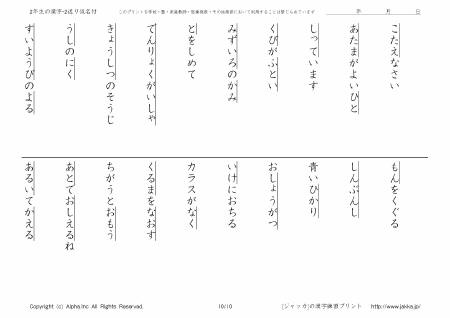 2年生の漢字-2送り仮名付
このプリントを学校・塾・家庭教師・医療施設・その他施設において利用することは禁じられています
年 月 日
こたえなさい
あたまがよいひと
しっています
くびがふとい
みずいろのかみ
とをしめて
でんりょくがいしゃ
きょうしつのそうじ
うしのにく
すいようびのよる
もんをくぐる
しんぶんし
青いひかり
おしょうがつ
いけにおちる
カラスがなく
くるまをなおす
ちがうとおもう
あとでおしえるね
あるいてかえる
Copyright (c) Alpha.Inc All Rights Reserved.
10/10
[ジャッカ]の漢字練習プリント http://www.jakka.jp/